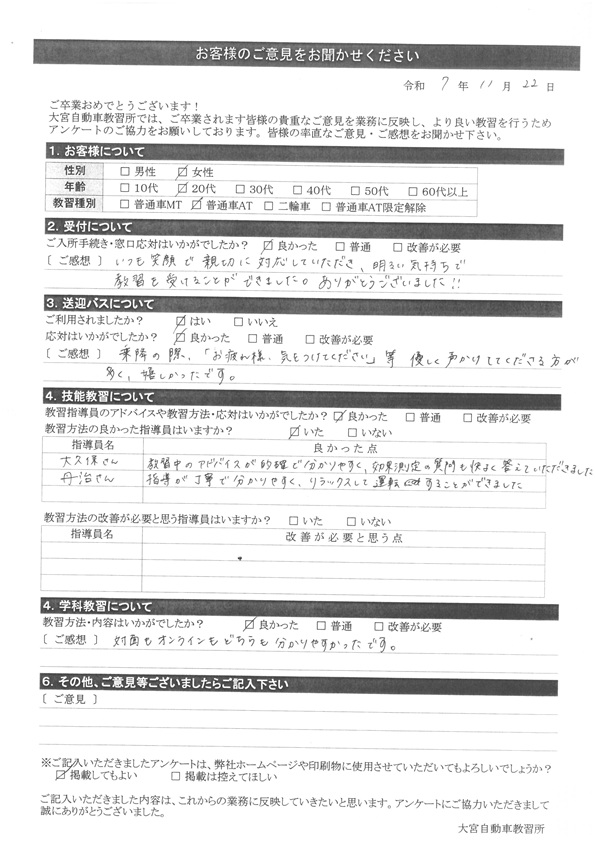 お客様のご意見をお聞かせください
令和 7 年 11 月 22 日
ご卒業おめでとうございます！
大宮自動車教習所では、ご卒業されます皆様の貴重なご意見を業務に反映し、より良い教習を行うため
アンケートのご協力をお願いしております。皆様の率直なご意見・ご感想をお聞かせ下さい。
1. お客様について
性別 □ 男性 ☑ 女性
年齢 □ 10代 ☑ 20代 □ 30代 □ 40代 □ 50代 □ 60代以上
教習種別 □ 普通車MT ☑ 普通車AT □ 二輪車 □ 普通車AT限定解除
2. 受付について
ご入所手続き・窓口応対はいかがでしたか？ ☑ 良かった □ 普通 □ 改善が必要
〔 ご感想 〕 いつも笑顔で親切に対応していただき、明るい気持ちで
教習を受けることができました。ありがとうございました!!
3. 送迎バスについて
ご利用されましたか？ ☑ はい □ いいえ
応対はいかがでしたか？ ☑ 良かった □ 普通 □ 改善が必要
〔 ご感想 〕 乗降の際、「お疲れ様、気をつけてください」等 優しく声かけしてくださる方が
多く、嬉しかったです。
4. 技能教習について
教習指導員のアドバイスや教習方法・応対はいかがでしたか？ ☑ 良かった □ 普通 □ 改善が必要
教習方法の良かった指導員はいますか？ ☑ いた □ いない
指導員名 良かった点
大久保さん 教習中のアドバイスが的確で分かりやすく、効果測定の質問も快よく答えていただきました
丹治さん 指導が丁寧で分かりやすく、リラックスして運転することができました
教習方法の改善が必要と思う指導員はいますか？ □ いた □ いない
指導員名 改善が必要と思う点
4. 学科教習について
教習方法・内容はいかがでしたか？ ☑ 良かった □ 普通 □ 改善が必要
〔 ご感想 〕 対面もオンラインもどちらも分かりやすかったです。
6. その他、ご意見等ございましたらご記入下さい
〔 ご意見 〕
※ご記入いただきましたアンケートは、弊社ホームページや印刷物に使用させていただいてもよろしいでしょうか？
☑ 掲載してもよい □ 掲載は控えてほしい
ご記入いただきました内容は、これからの業務に反映していきたいと思います。アンケートにご協力いただきまして
誠にありがとうございました。
大宮自動車教習所